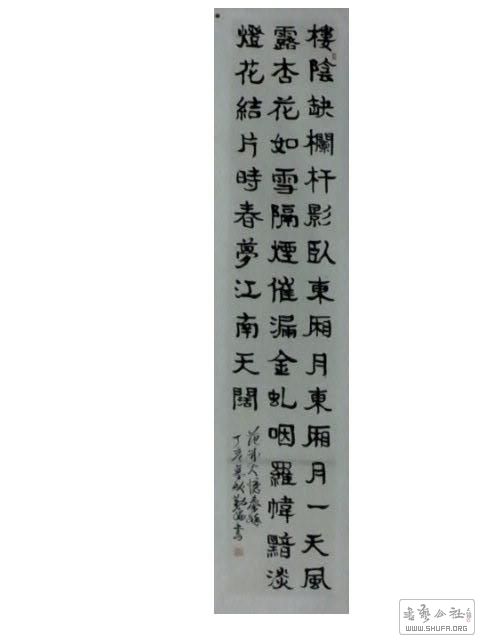 樓陰缺欄杆影臥東厢月東厢月一天風
露杏花如雪隔煙催漏金虬咽羅幃黯淡
燈花結片時春夢江南天闊
范成大憶秦娥
丁亥暮秋
書
书艺公社
WWW.SHUFA.ORG